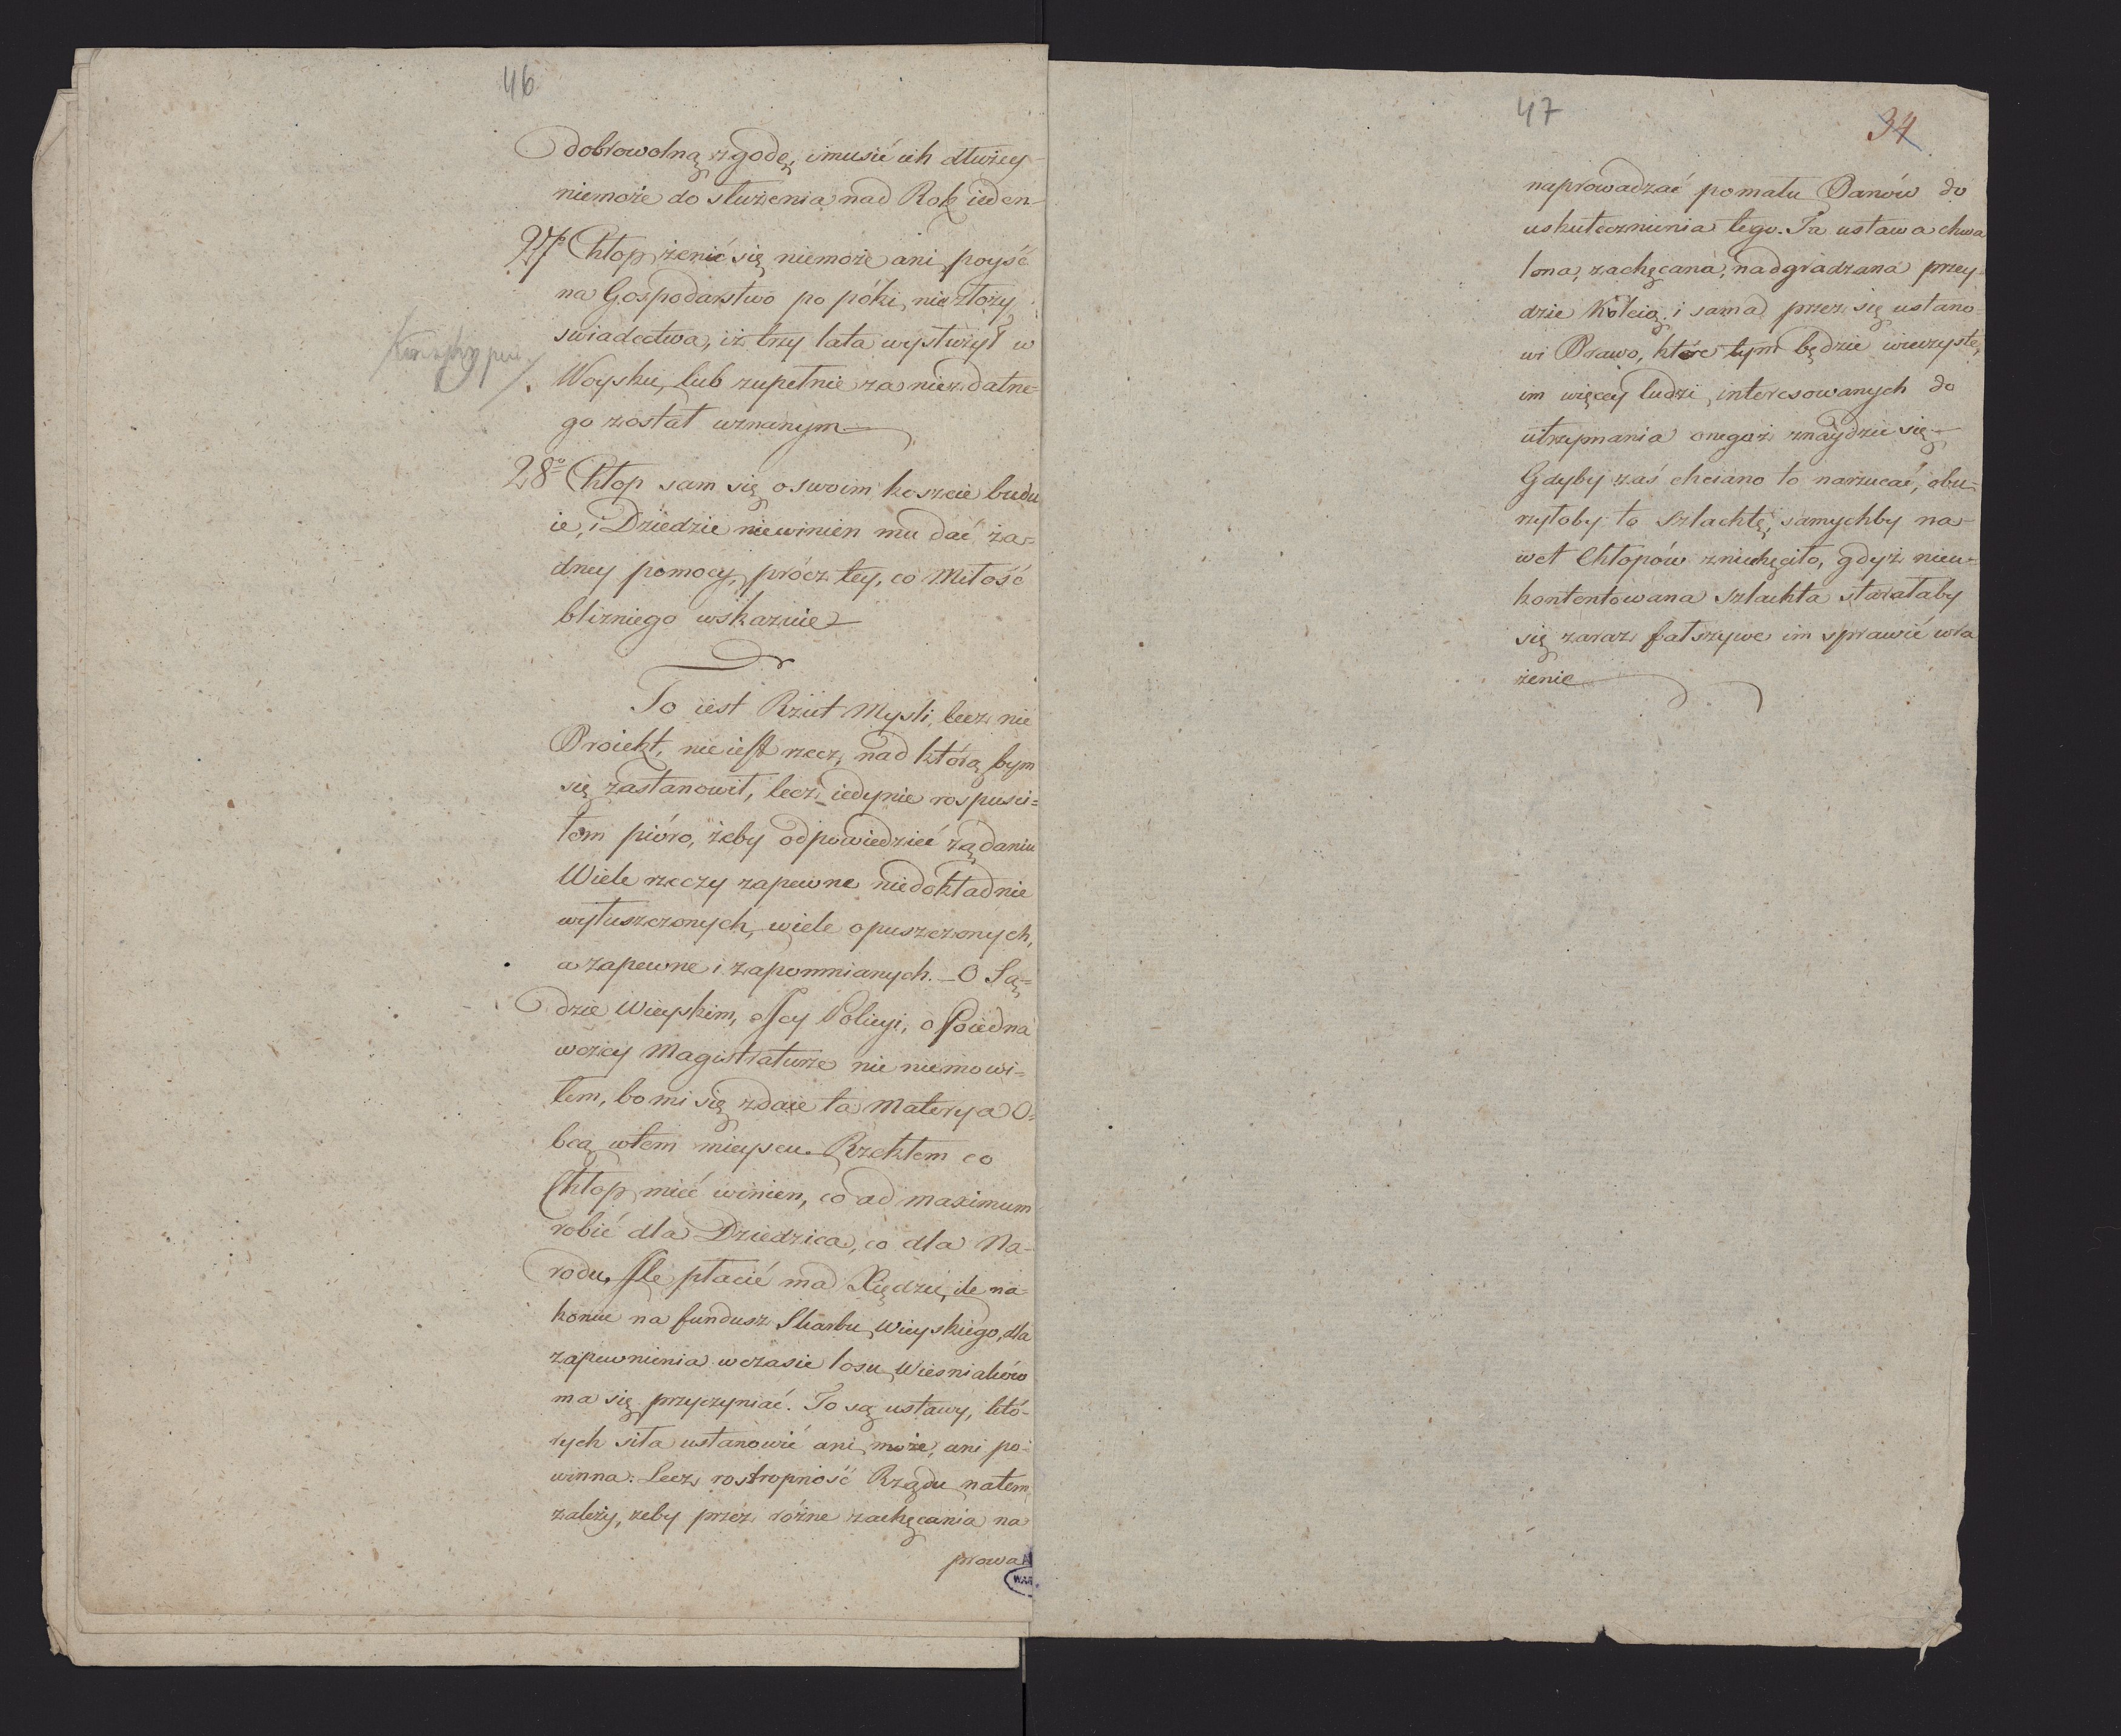 46
dobrowolną zgodę, i musić ich dłużey
niemoże do służenia nad Rok ieden
27º Chłop żenić się niemoże ani poyść
na Gospodarstwo po póki, niezłoży
swiadectwa, iż trzy lata wysłużył w
Woysku, lub zupełnie za niezdatne=
go został uznanym
28º Chłop sam się o swoim koszcie budu
ie, i Dziedzic niewinien mu dać ża=
dney pomocy, prócz tey, co Miłość
bliżniego wskazuie
To iest Rzut Mysli, lecz nie
Proiekt, nie iest rzecz, nad którą bym
się zastanowił, lecz iedynie rospusci=
łem pióro, żeby odpowiedzieć żądaniu
Wiele rzeczy zapewne niedokładnie
wyłuszczonych, wiele opuszczonych,
a zapewne i zapomnianych. _ O Są=
dzie Wieyskim, o Jey Policyi, o Poiedna
wczey Magistraturze nic niemowi=
łem, bo mi się zdaie ta Materya O=
bcą w tem mieyscu. Rzekłem co
Chłop mieć winien, co ad maximum
robić dla Dziedzica, co dla Na-
rodu, Ile płacić ma Xiędzu, ile na
koniec na fundusz Skarbu Wieyskiego, dla
zapewnienia w czasie losu Wiesniaków
ma się przyczyniać. To są ustawy, któ-
rych siła ustanowić ani może, ani po-
winna. Lecz rostropność Rządu na tem
zależy, żeby przez różne zachęcania na
prowa
47
34
naprowadzać pomału Panów do
uskutecznienia tego. Ta ustawa chwa
lona, zachęcana, nadgradzana przey
dzie Koleią, i sama przez się ustano
wi Prawo, które tym będzie wieczyste,
im więcey ludzi interesowanych do
utrzymania onegoż znaydzie się
Gdyby zaś chciano to narzucać, obu-
rzyłoby to szlachtę, samychby na-
wet Chłopów zniechęciło, gdyż nieu-
kontentowana szlachta starałaby
się zaraz fałszywe im sprawić wra
żenie